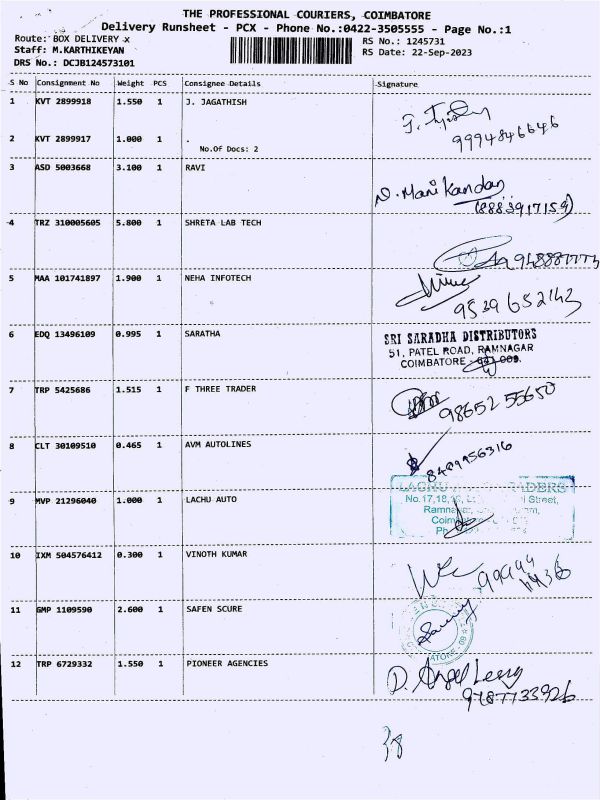 THE PROFESSIONAL COURIERS, COIMBATORE
Delivery Runsheet - PCX - Phone No.:0422-3505555 - Page No.:1
Route: BOX DELIVERY x
RS No.: 1245731
Staff: M.KARTHIKEYAN
RS Date: 22-Sep-2023
DRS No.: DCJB124573101
S No Consignment No Weight PCS Consignee Details Signature
1 KVT 2899918 1.550 1 J. JAGATHISH
9994846646
2 KVT 2899917 1.000 1 .
No.Of Docs: 2
3 ASD 5003668 3.100 1 RAVI
D. Manikandan
(8883917159)
4 TRZ 310005605 5.800 1 SHRETA LAB TECH
5 MAA 101741897 1.900 1 NEHA INFOTECH
9539652143
6 EDQ 13496109 0.995 1 SARATHA
SRI SARADHA DISTRIBUTORS
51, PATEL ROAD, RAMNAGAR
COIMBATORE - 009.
7 TRP 5425686 1.515 1 F THREE TRADER
9865255650
8 CLT 30109510 0.465 1 AVM AUTOLINES
8489956316
9 MVP 21296040 1.000 1 LACHU AUTO
No.17,18, Street,
10 IXM 504576412 0.300 1 VINOTH KUMAR
11 GMP 1109590 2.600 1 SAFEN SCURE
12 TRP 6729332 1.550 1 PIONEER AGENCIES
D. Angel
9787733926
38